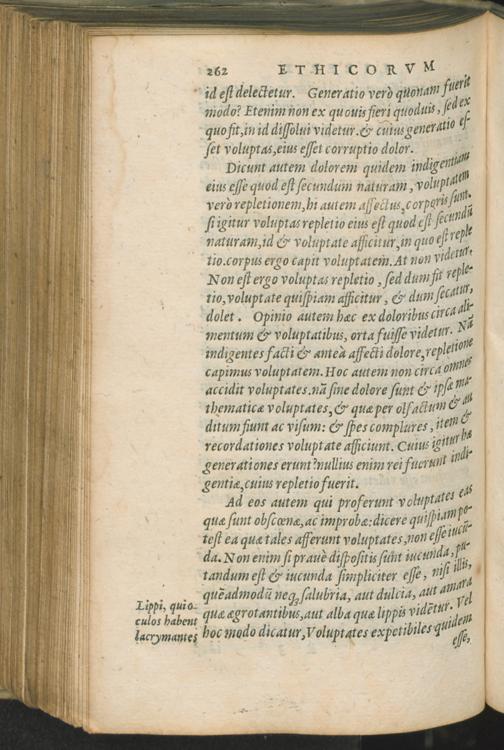 262 ETHICORVM
id est delectetur. Generatio verò quónam fuerit
modo? Etenim non ex quouis fieri quoduis, sed ex
quo fit, in id dissolui videtur. & cuius generatio es-
set voluptas, eius esset corruptio dolor.
Dicunt autem dolorem quidem indigentiam
eius esse quod est secundum naturam, voluptatem
verò repletionem, hi autem affectus, corporis sunt.
si igitur voluptas repletio eius est quod est secundũ
naturam, id & voluptate afficitur, in quo est reple
tio. corpus ergo capit voluptatem. At non videtur.
Non est ergo voluptas repletio, sed dum fit reple-
tio, voluptate quispiam afficitur, & dum secatur,
dolet. Opinio autem hæc ex doloribus circa ali-
mentum & voluptatibus, orta fuisse videtur. Nã
indigentes facti & anteà affecti dolore, repletione
capimus voluptatem. Hoc autem non circa omnes
accidit voluptates. nã sine dolore sunt & ipsæ ma-
thematicæ voluptates, & quæ per olfactum & au
ditum fiunt ac visum: & spes complures, item &
recordationes voluptate afficiunt. Cuius igitur hæ
generationes erunt? nullius enim rei fuerunt indi-
gentiæ, cuius repletio fuerit.
Ad eos autem qui proferunt voluptates eas
quæ sunt obscœnæ, ac improbæ: dicere quispiam po-
test ea quæ tales afferunt voluptates, non esse iucũ-
da. Non enim si prauè dispositis sunt iucunda, pu-
tandum est & iucunda simpliciter esse, nisi illis,
quẽadmodũ neqꝫ salubria, aut dulcia, aut amara
quæ ægrotantibus, aut alba quæ lippis vidẽtur. Vel
hoc modo dicatur, Voluptates expetibiles quidem
esse,
Lippi, qui o-
culos habent
lacrymantes